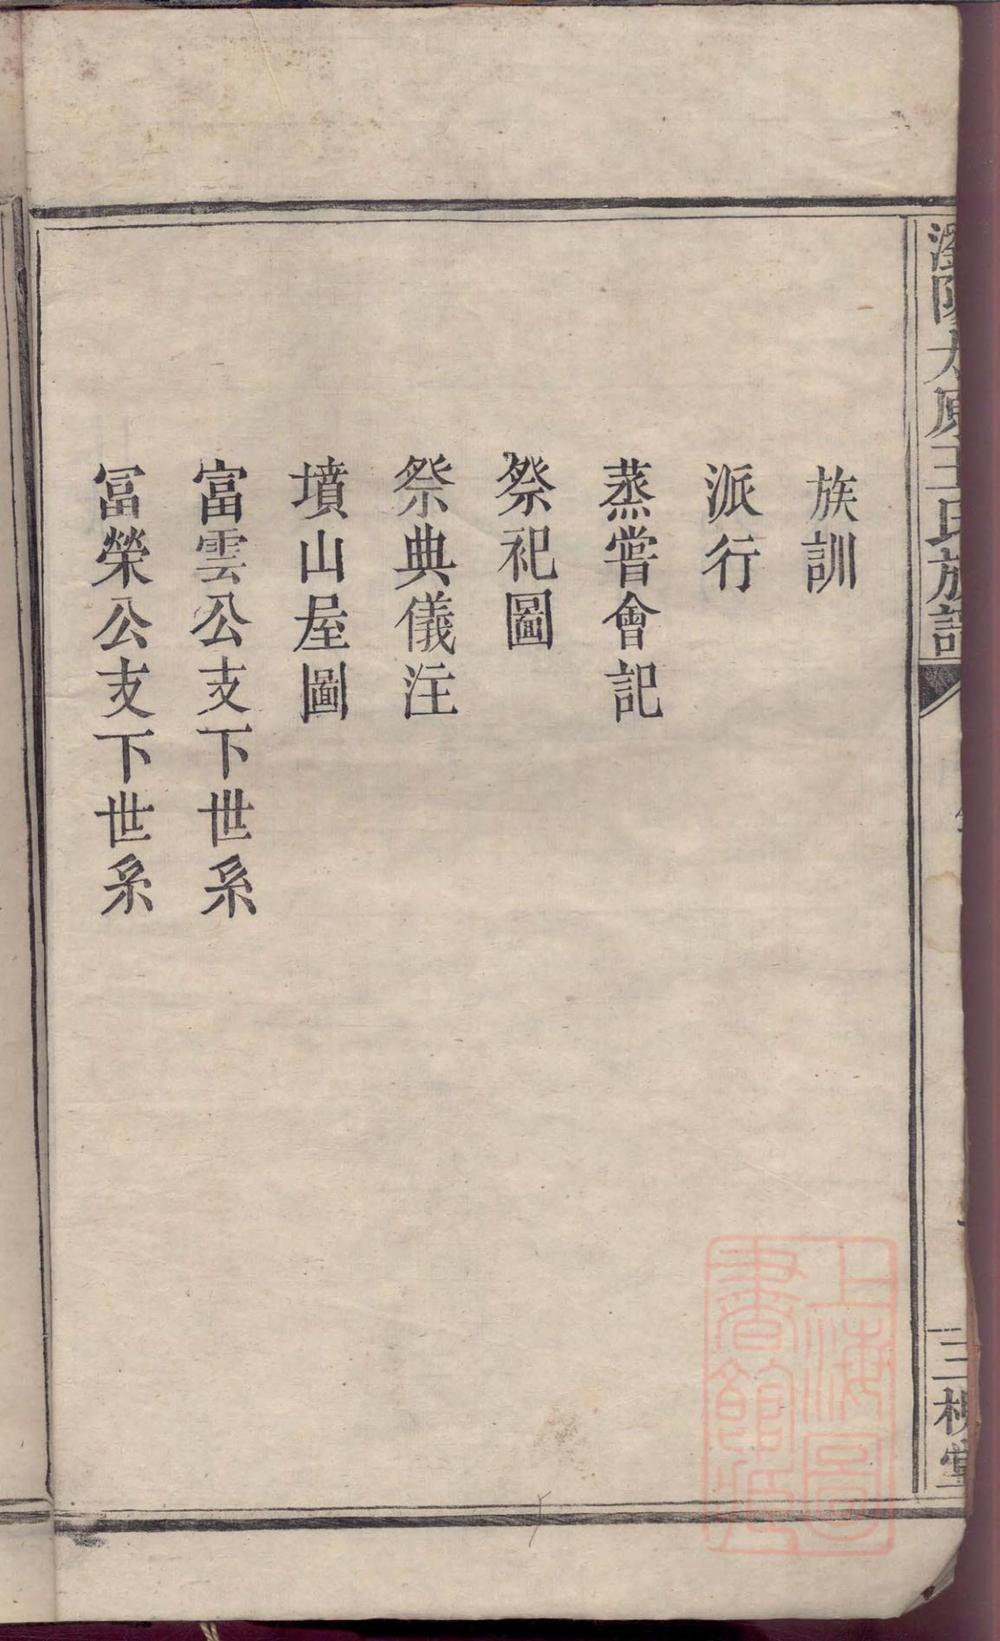 瀏陽太原王氏族譜
三槐堂
族訓
派行
蒸嘗會記
祭祀圖
祭典儀注
墳山屋圖
富雲公支下世系
冨榮公支下世系
上海圖書館藏